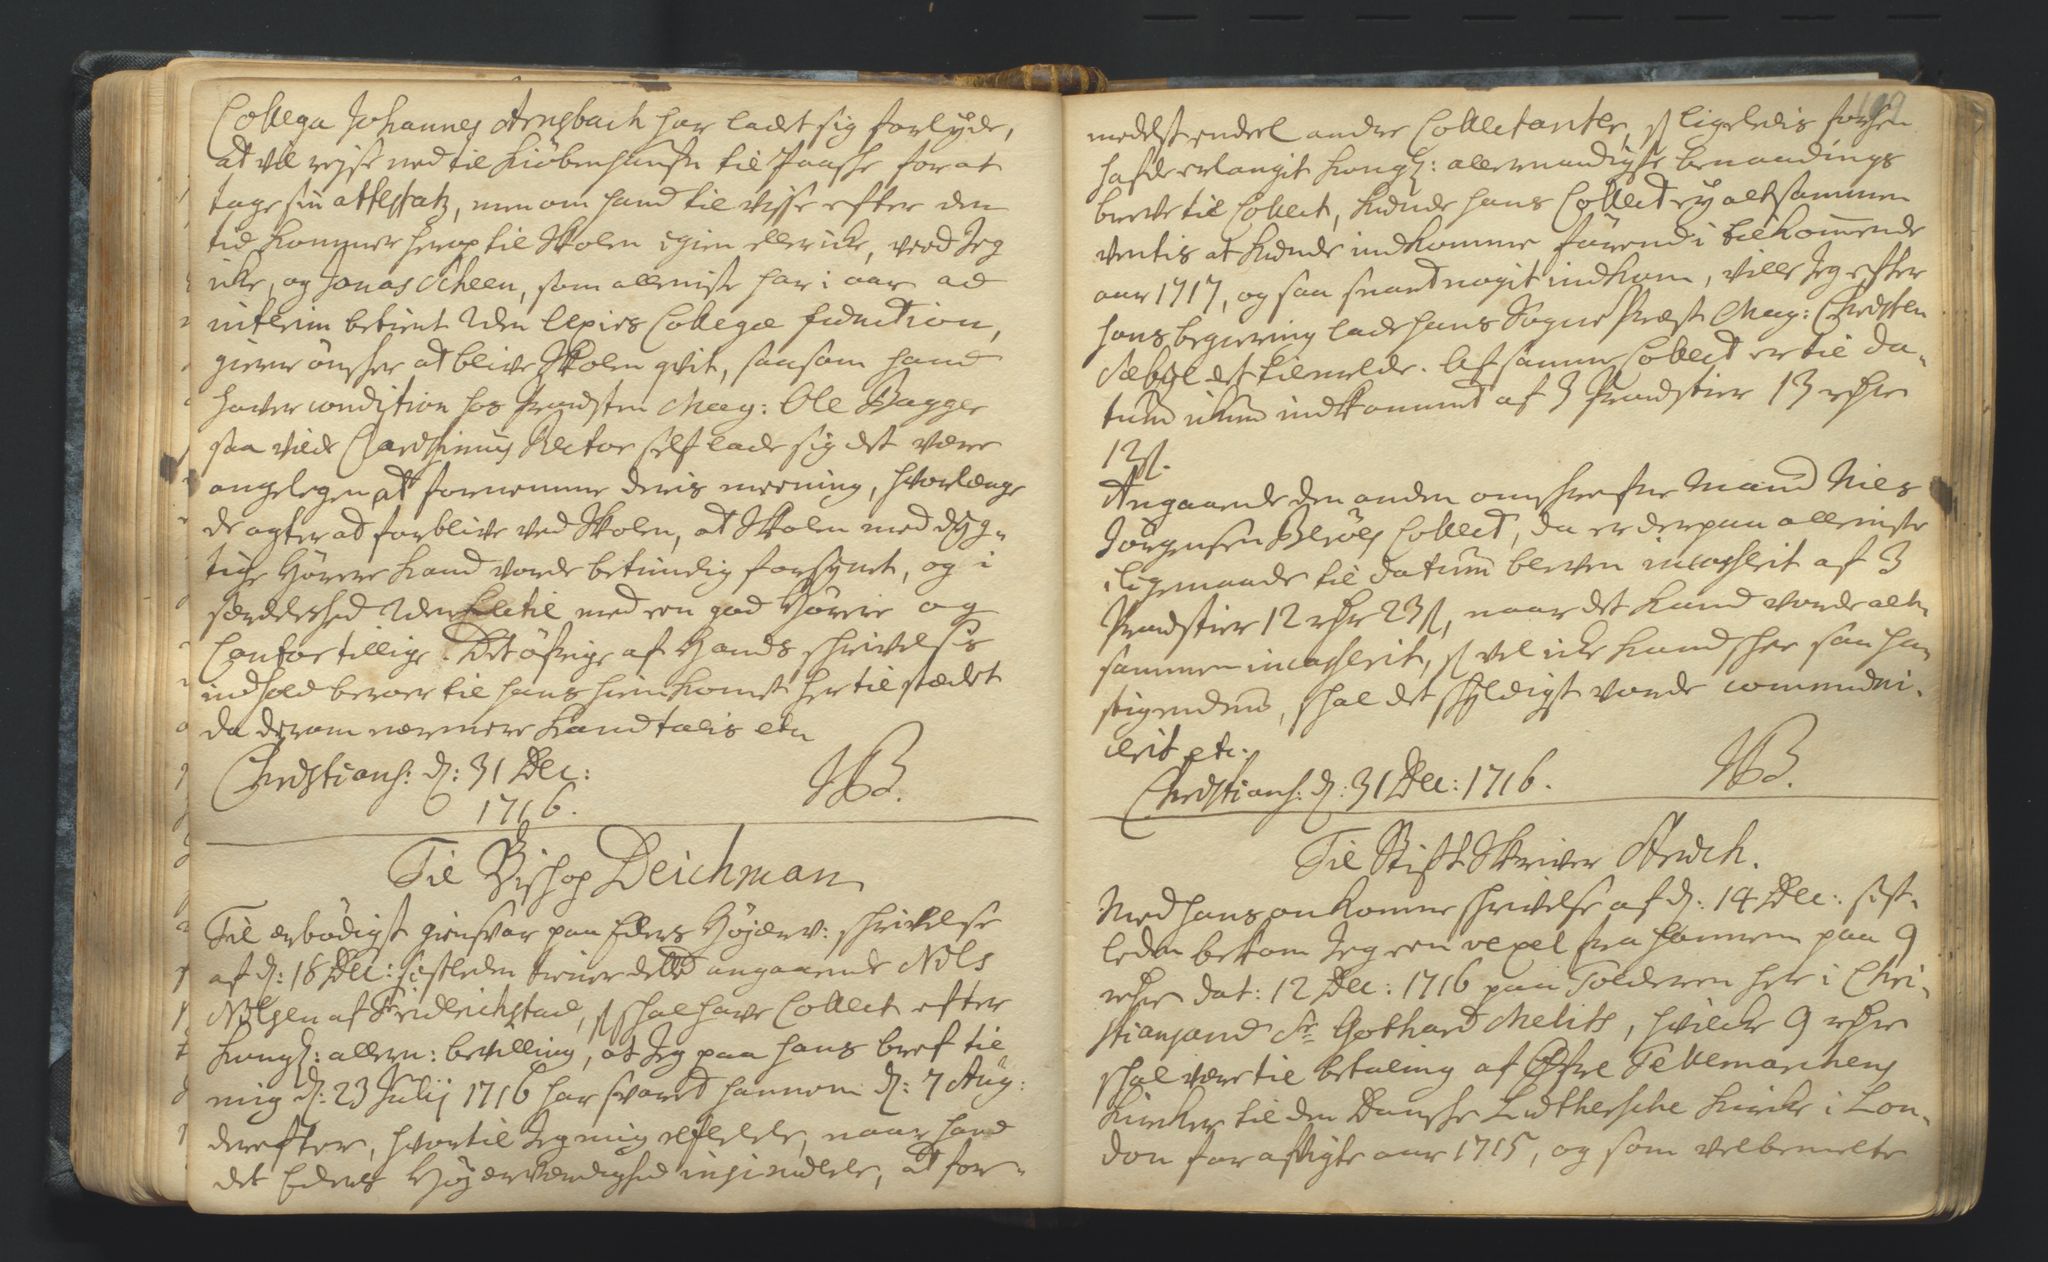 Collega Johannes Arnsbach har ladet sig forlyde,
at vil rejse ned til Kiöbenhaufn til Paasche for at
tage sin attestatz, men om hand til visse efter den
tid kommer herop til Skolen igien eller icke, veed Jeg
icke, og Jonas Scheen, som alleniste har i aar ad
interim betient 2den Classis Collegæ function,
gierne önsker at blive Skolen qvit, saasom hand
haver condition hos Præsten Mag: Ole Bagger
saa vilde Clarissimus Rector self lade sig det være
angelegen at fornemme deris meening, hvorlænge
de agter at forblive ved Skolen, at Skolen med dyg-
tige Hörere kand vorde betimelig forsynet, og i
særdelished 2den Lectie med een god Hörer og
Cantor tillige. Det öfrige af Hands skrivelsis
indhold beroer til hans hiemkomst her til stædet
da derom nærmere kand talis etc
Christians: d: 31 Dec:
1716.
JB.
Til Bishop Deichman
Til ærbödigst giensvar paa Eders Höjærv: skrivelse
af d: 16 Dec: sistleden tiener dette angaaende Nils
Nilsen af Fridrichstad, skal have Collect efter
Kongl: allern: bevilling, at Jeg paa hans bref til
mig d: 23 Julij 1716 har svaret hannem d: 7 Aug:
derefter, hvortil Jeg mig refererer, naar hand
det Eders Höjærværdighed insinuerer, at for-
199
medelst endeel andre Collectanter, ligeledis forhen
hafde erlangit Kongl: allernaadigste benaadings
breve til Collect, kunde hans Collect ey altsammen
ventis at kunde indkomme förend i tilkommende
aar 1717, og saa snart nogit indkom, ville Jeg efter
hans begiering lade hans Sogne Præst Mag: Christen
Sæbye det tilmelde. Af samme Collect er til da-
tum ickun indkommet af 3 Præstier 13 rdr
12 s.
Angaaende den anden omskrefne Mand Niels
Jörgensen Collect, da er derpaa alleniste
i ligemaade til datum bleven incasserit af 3
Præstier 12 rdr 23 s, naar det kand vorde alt-
sammen incasserit, vel icke kand skee saa ha-
stigendes, skal det skyldigst vorde communi-
cerit etc:
Christians: d: 31 Dec: 1716.
JB.
Til Stift Skriver
Med hans ankomne skrivelse af d: 14 Dec: sist-
leden bekom Jeg een vexel fra hannem paa 9
rdr dat: 12 Dec: 1716 paa Tolderen her i Chri-
stiansand Sr Gothard Melits, hvilcke 9 rdr
skal være til betaling af Öfre Tellemarchens
Kircker til den Danske Lutherske Kircke i London
don for afvigte aar 1715, og som velbemelte